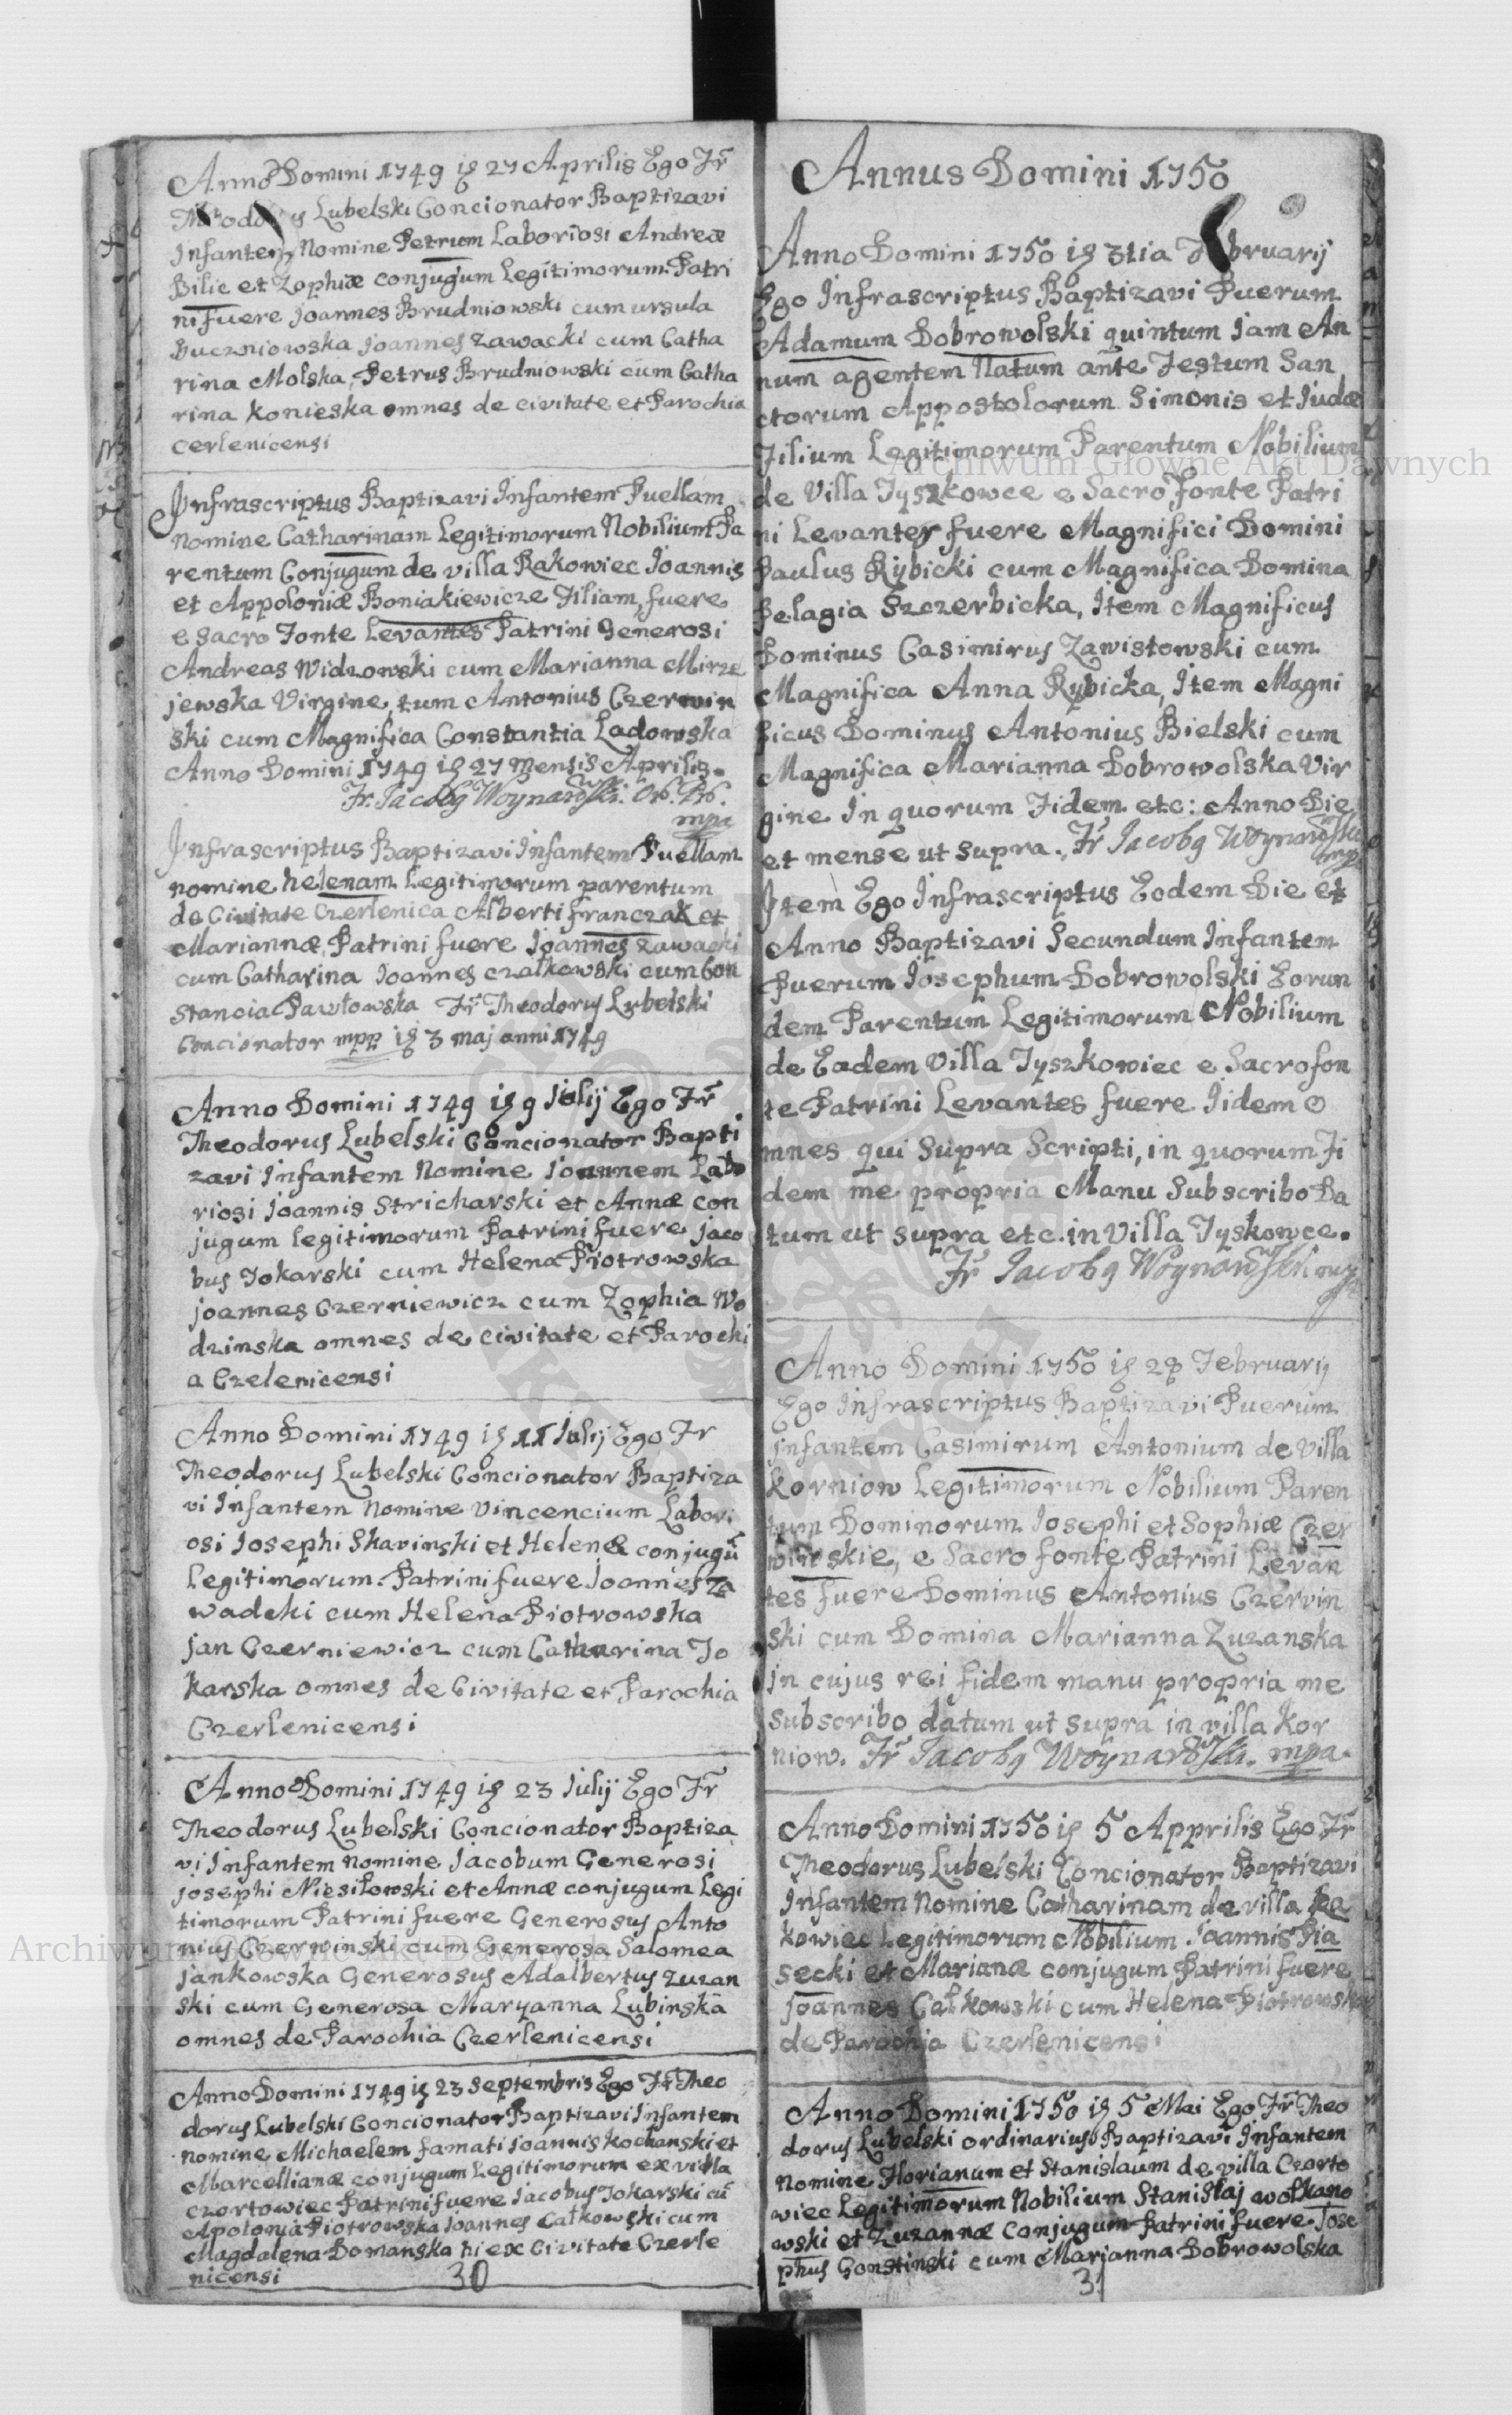 Anno Domini 1749 ig 27 Aprilis Ego Fr
Lubelski Concionator Baptizavi
Infantem Nomine Petrum Laboriosi Andreæ
Bilic et Zophiæ conjugum Legitimorum. Patri
ni Fuere Joannes Brudniowski cum ursula
Buczniowska Joannes Zawacki cum Catha
rina Molska, Petrus Brudniowski cum Catha
rina Konieska omnes de civitate et Parochia
cerlenicensi
Infrascriptus Baptizavi Infantem Puellam
Nomine Catharinam Legitimorum Nobilium Pa
rentum Conjugum de villa Rakowiec Joannis
et Appoloniæ Boniakiewicze Filiam, fuere
e Sacro Fonte Levantes Patrini Generosi
Andreas Widzowski cum Marianna Mirze
jewska Virgine, tum Antonius Czerwin
ski cum Magnifica Constantia Ladowska
Anno Domini 1749 ig 27 Mensis Aprilis.
Fr. Jacobg Woynarowski. Or. Pr.
mpa
Infrascriptus Baptizavi Infantem Puellam
nomine helenam Legitimorum parentum
de Civitate Czerlenica Alberti franczak et
Mariannæ, Patrini fuere Joannes zawacki
cum Catharina Joannes czalkowski cum Con
stancia Pawlowska Fr Theodorus Lubelski
Concionator mpp ig 3 maj anni 1749
Anno Domini 1749 ig 9 Iulij Ego Fr
Theodorus Lubelski Concionator Bapti
zavi Infantem Nomine Joannem Labo
riosi Joannis Stricharski et Annæ con
jugum legitimorum Patrini fuere jaco
bus Tokarski cum Helena Piotrowska
joannes Czerniewicz cum Zophia Wo
dzinska omnes de civitate et Parochi
a Czelenicensi
Anno Domini 1749 ig 11 Iulij Ego Fr
Theodorus Lubelski Concionator Baptiza
vi Infantem Nomine Vincencium Labori
osi Josephi Skavinski et Helenæ conjugū
Legitimorum. Patrini fuere Joannes Za
wadcki cum Helena Piotrowska
jan Czerniewicz cum Catharina To
karska omnes de Civitate et Parochia
Czerlenicensi
Anno Domini 1749 ig 23 Iulij Ego Fr
Theodorus Lubelski Concionator Baptiza
vi Infantem nomine Jacobum Generosi
josephi Niesiłowski et Annæ conjugum Legi
timorum Patrini fuere Generosus Anto
nius Czerwinski cum Generosa Salomea
jankowska Generosus Adalbertus Zuzan
ski cum Generosa Maryanna Lubinska
omnes de Parochia Czerlenicensi
Anno Domini 1749 ig 23 Septembris Ego Fr Theo
dorus Lubelski Concionator Baptizavi Infantem
nomine Michaelem famati Joannis Kochanski et
Marcellianæ conjugum Legitimorum ex villa
czortowiec Patrini fuere Jacobus Tokarski cū
Apolonia Piotrowska Joannes Całkowski cum
Magdalena Domanska hi ex Civitate Czerle
nicensi
30
Annus Domini 1750
Anno Domini 1750 ig 3tia Februarij
Ego Infrascriptus Baptizavi Puerum
Adamum Dobrowolski quintum Jam An
num agentem Natum ante Festum San
ctorum Appostolorum Simonis et Iudæ
Filium Legitimorum Parentum Nobilium
de Villa Tyszkowce e Sacro Fonte Patri
ni Levantes fuere Magnifici Domini
Paulus Rybicki cum Magnifica Domina
Pelagia Szczerbicka, Item Magnificus
Dominus Casimirus Zawistowski cum
Magnifica Anna Rybicka, Item Magni
ficus Dominus Antonius Bielski cum
Magnifica Marianna Dobrowolska Vir
gine In quorum Fidem etc: Anno Die
et mense ut supra. Fr Jacobg Woynarowski
mpa
Item Ego Infrascriptus Eodem Die et
Anno Baptizavi Secundum Infantem
Puerum Josephum Dobrowolski Eorun
dem Parentum Legitimorum Nobilium
de Eadem Villa Tyszkowiec e Sacro fon
te Patrini Levantes fuere Iidem o
mnes qui Supra Scripti, in quorum Fi
dem me propria Manu Subscribo Da
tum ut supra etc. in Villa Tyskowce.
Fr Jacobg Woynarowski mpa
Anno Domini 1750 ig 28 Februarij
Ego Infrascriptus Baptizavi Puerum
Infantem Casimirum Antonium de Villa
Korniow Legitimorum Nobilium Paren
tum Dominorum Josephi et Sophiæ Czer
winskie, e Sacro fonte Patrini Levan
tes fuere Dominus Antonius Czervin
ski cum Domina Marianna Zuzanska
in cujus rei fidem manu propria me
Subscribo datum ut supra in villa Kor
niow. Fr Jacobg Woynarowski. mpa.
Anno Domini 1750 ig 5 Apprilis Ego Fr
Theodorus Lubelski Concionator Baptizavi
Infantem Nomine Catharinam de villa Ra
kowiec Legitimorum Nobilium Joannis Pia
secki et Marianæ conjugum Patrini fuere
Joannes Całkowski cum Helena Piotrowska
de Parochia Czerlenicensi
Anno Domini 1750 ig 5 Mai Ego Fr Theo
dorus Lubelski ordinarius Baptizavi Infantem
Nomine Florianum et Stanislaum de villa Czorto
wiec Legitimorum Nobilium Stanislaj wołkano
wski et Zuzannæ Conjugum Patrini fuere Jose
phus Gonstinski cum Marjanna Dobrowolska
31
Archiwum Główne Akt Dawnych